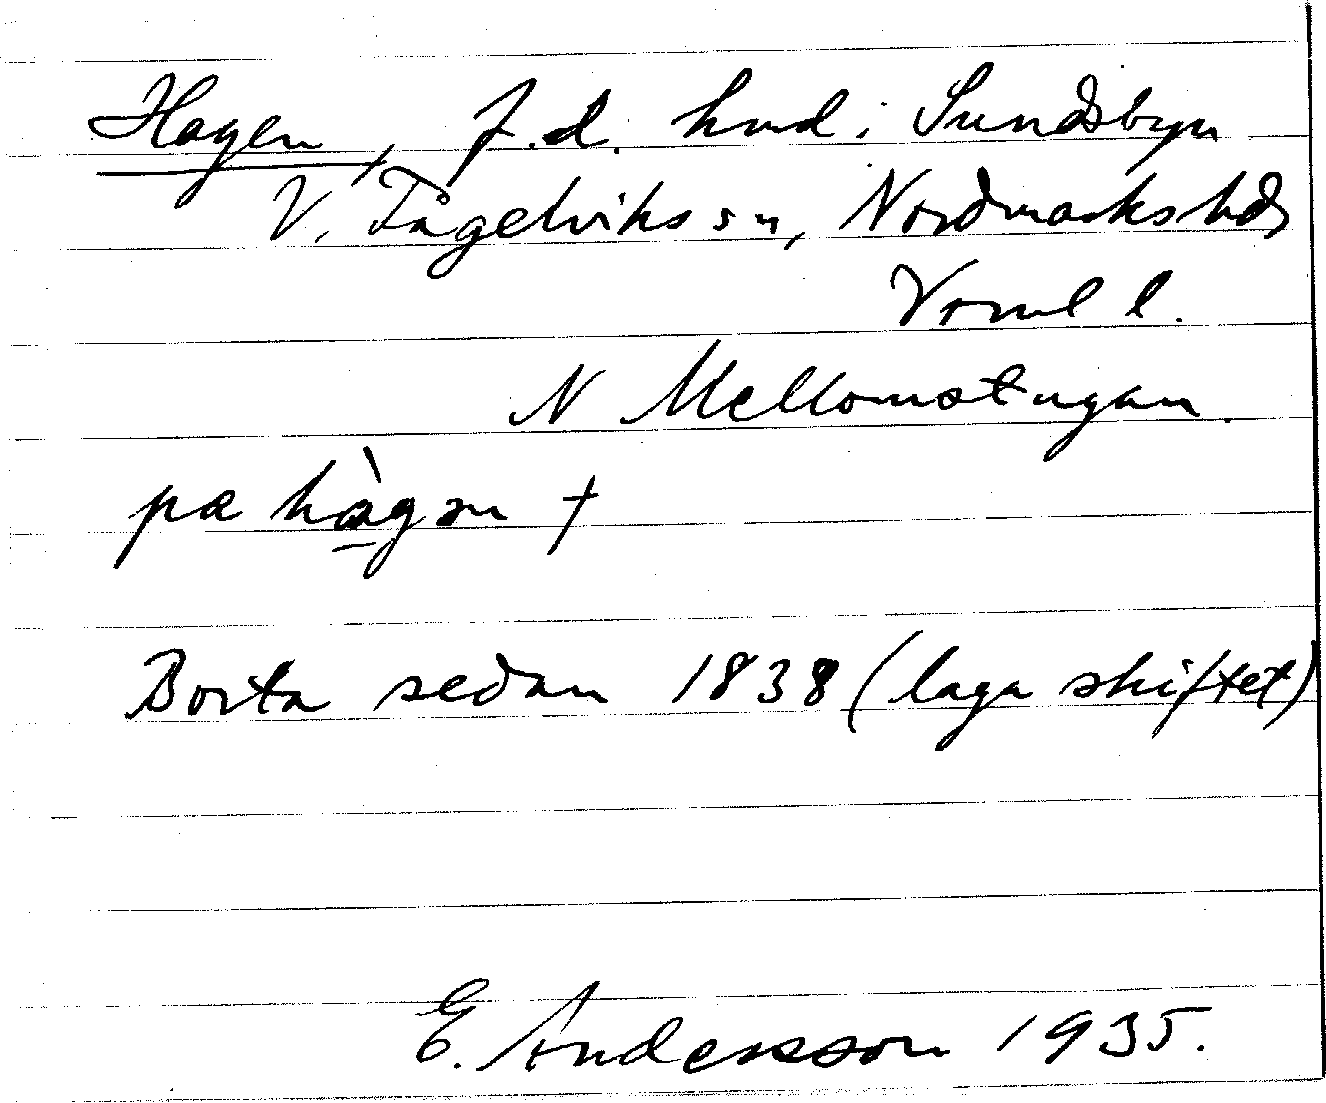 Hagen, f.d. hmd. i Sundsbyn
V. Fågelviks sn, Nordmarks hd
Vrml l.
N Mellomstugan.
pa hàgən †
Borta sedan 1838 (laga skiftet)
E. Andersson 1935.